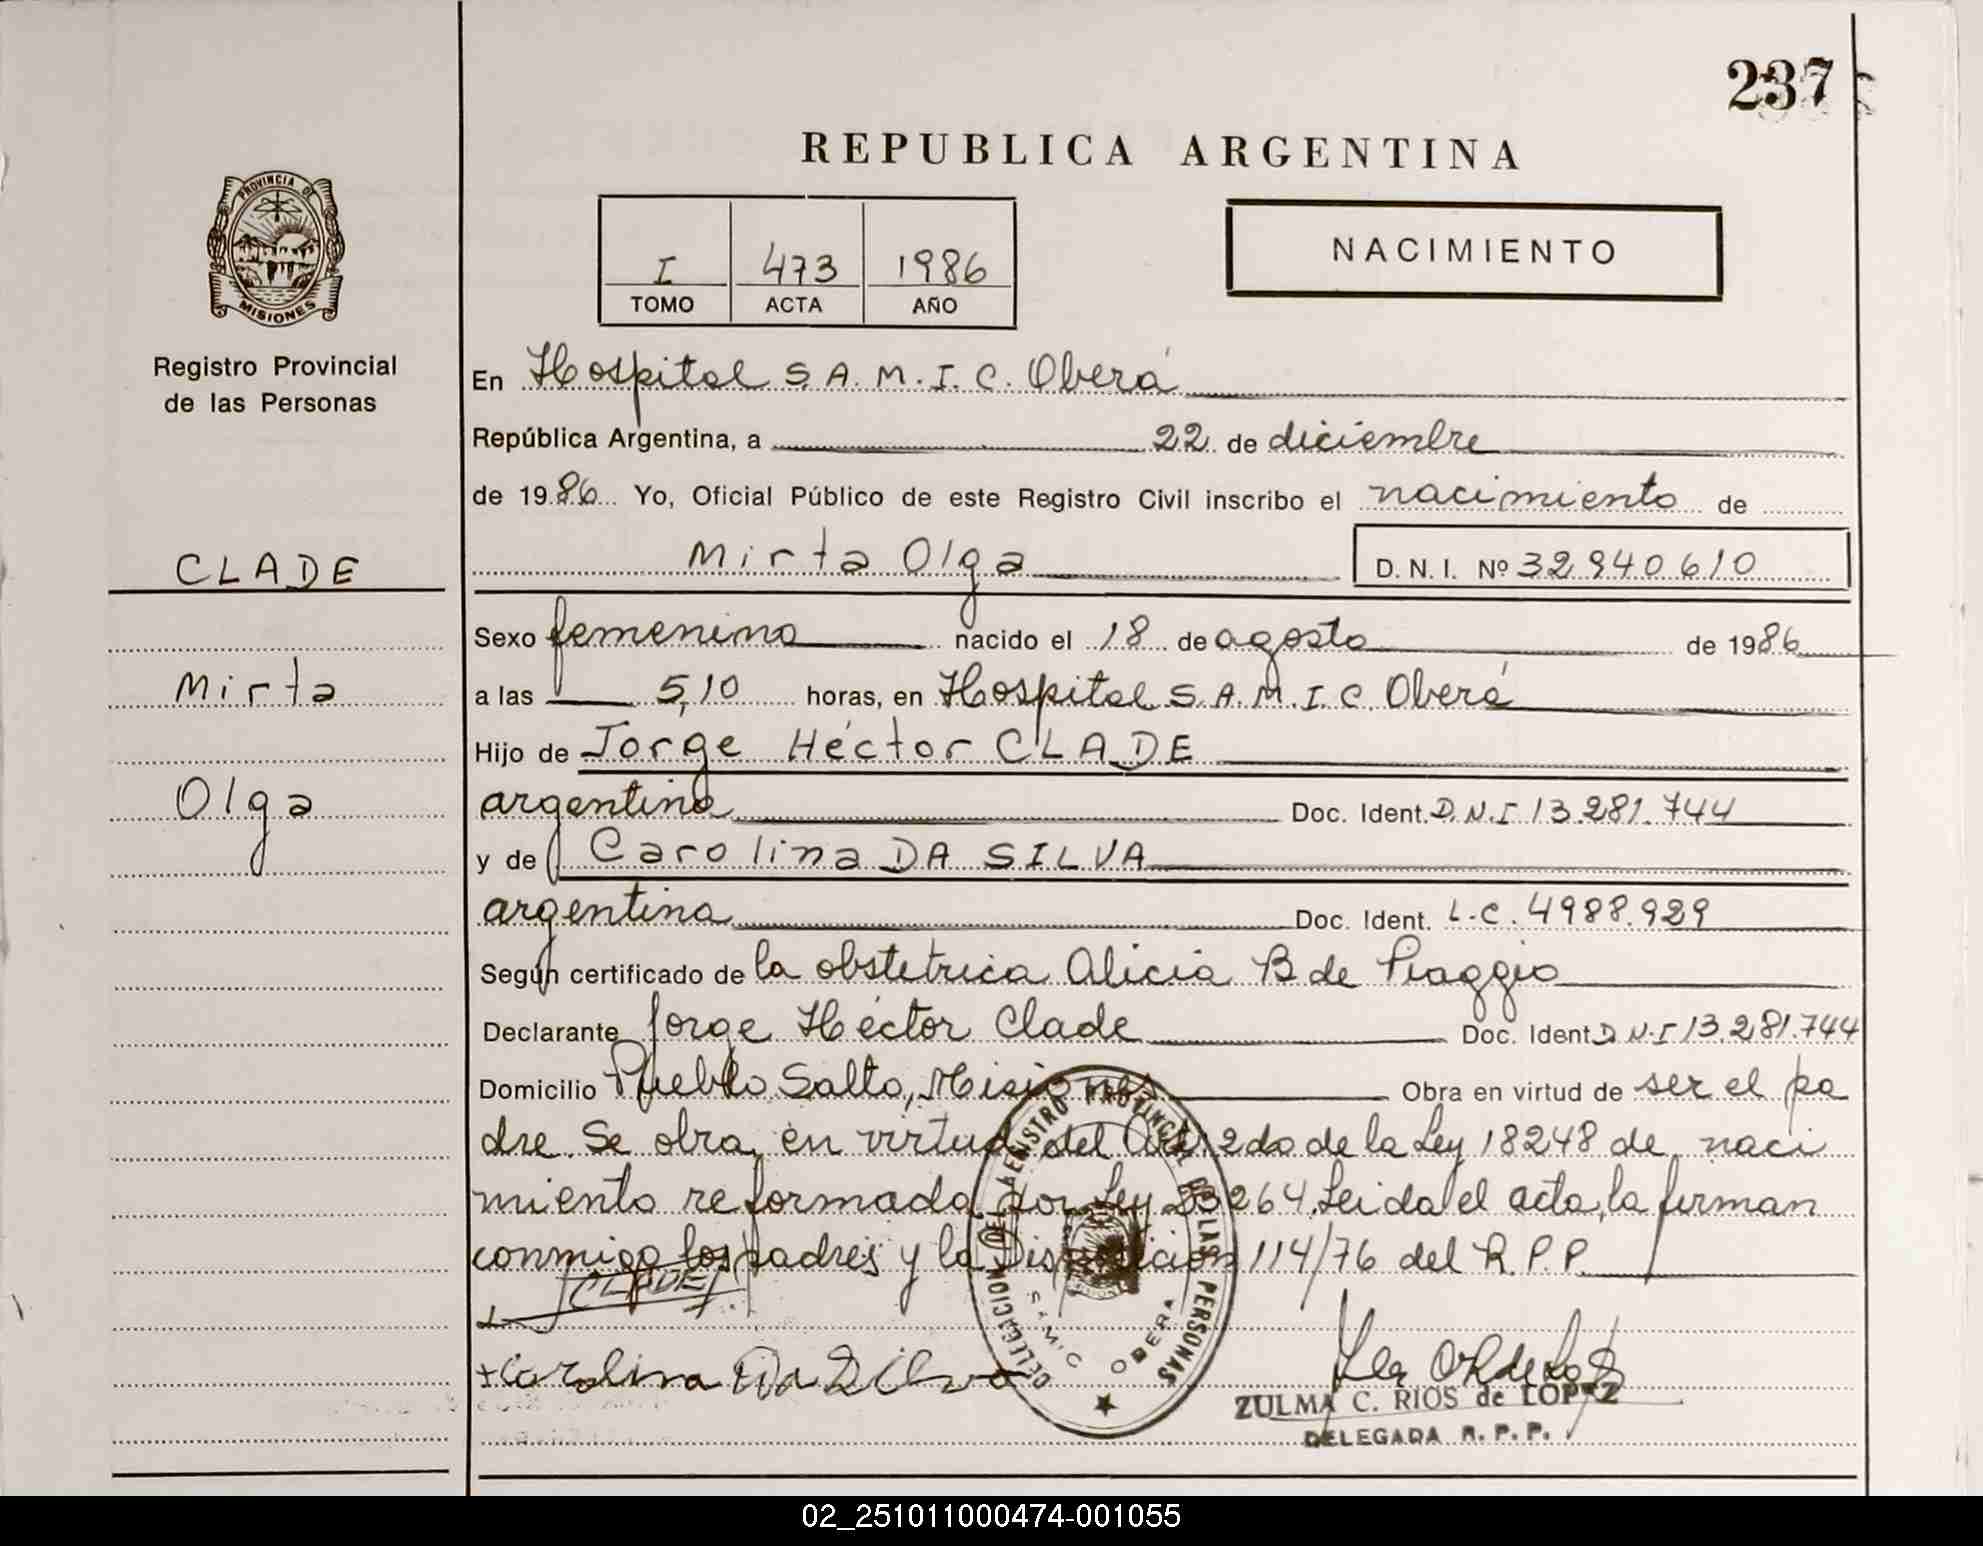 237
REPUBLICA ARGENTINA
PROVINCIA DE
MISIONES
Registro Provincial
de las Personas
I 473 1986
TOMO ACTA AÑO
NACIMIENTO
CLADE
Mirta
Olga
En Hospital S.A.M.I.C. Oberá
República Argentina, a 22 de diciembre
de 1986 Yo, Oficial Público de este Registro Civil inscribo el nacimiento de
Mirta Olga D.N.I. Nº 32940610
Sexo femenino nacido el 18 de agosto de 1986
a las 5,10 horas, en Hospital S.A.M.I.C. Oberá
Hijo de Jorge Héctor CLADE
argentina Doc. Ident. D.N.I 13.281.744
y de Carolina DA SILVA
argentina Doc. Ident. L.C. 4988.929
Según certificado de la obstetrica Alicia B de Piaggio
Declarante Jorge Héctor Clade Doc. Ident D.N.I 13.281.744
Domicilio Pueblo Salto, Misiones Obra en virtud de ser el pa
dre. Se obra en virtud del Art. 2do de la Ley 18248 de naci
miento reformada por Ley 23264. Leida el acta, la firman
conmigo los padres y la Disposición 114/76 del R.P.P.
CLADE
Carolina Da Silva
DELEGACION DEL REGISTRO PROVINCIAL DE LAS PERSONAS
SAMIC OBERA
ZULMA C. RIOS de LOPEZ
DELEGADA R.P.P.
02_251011000474-001055